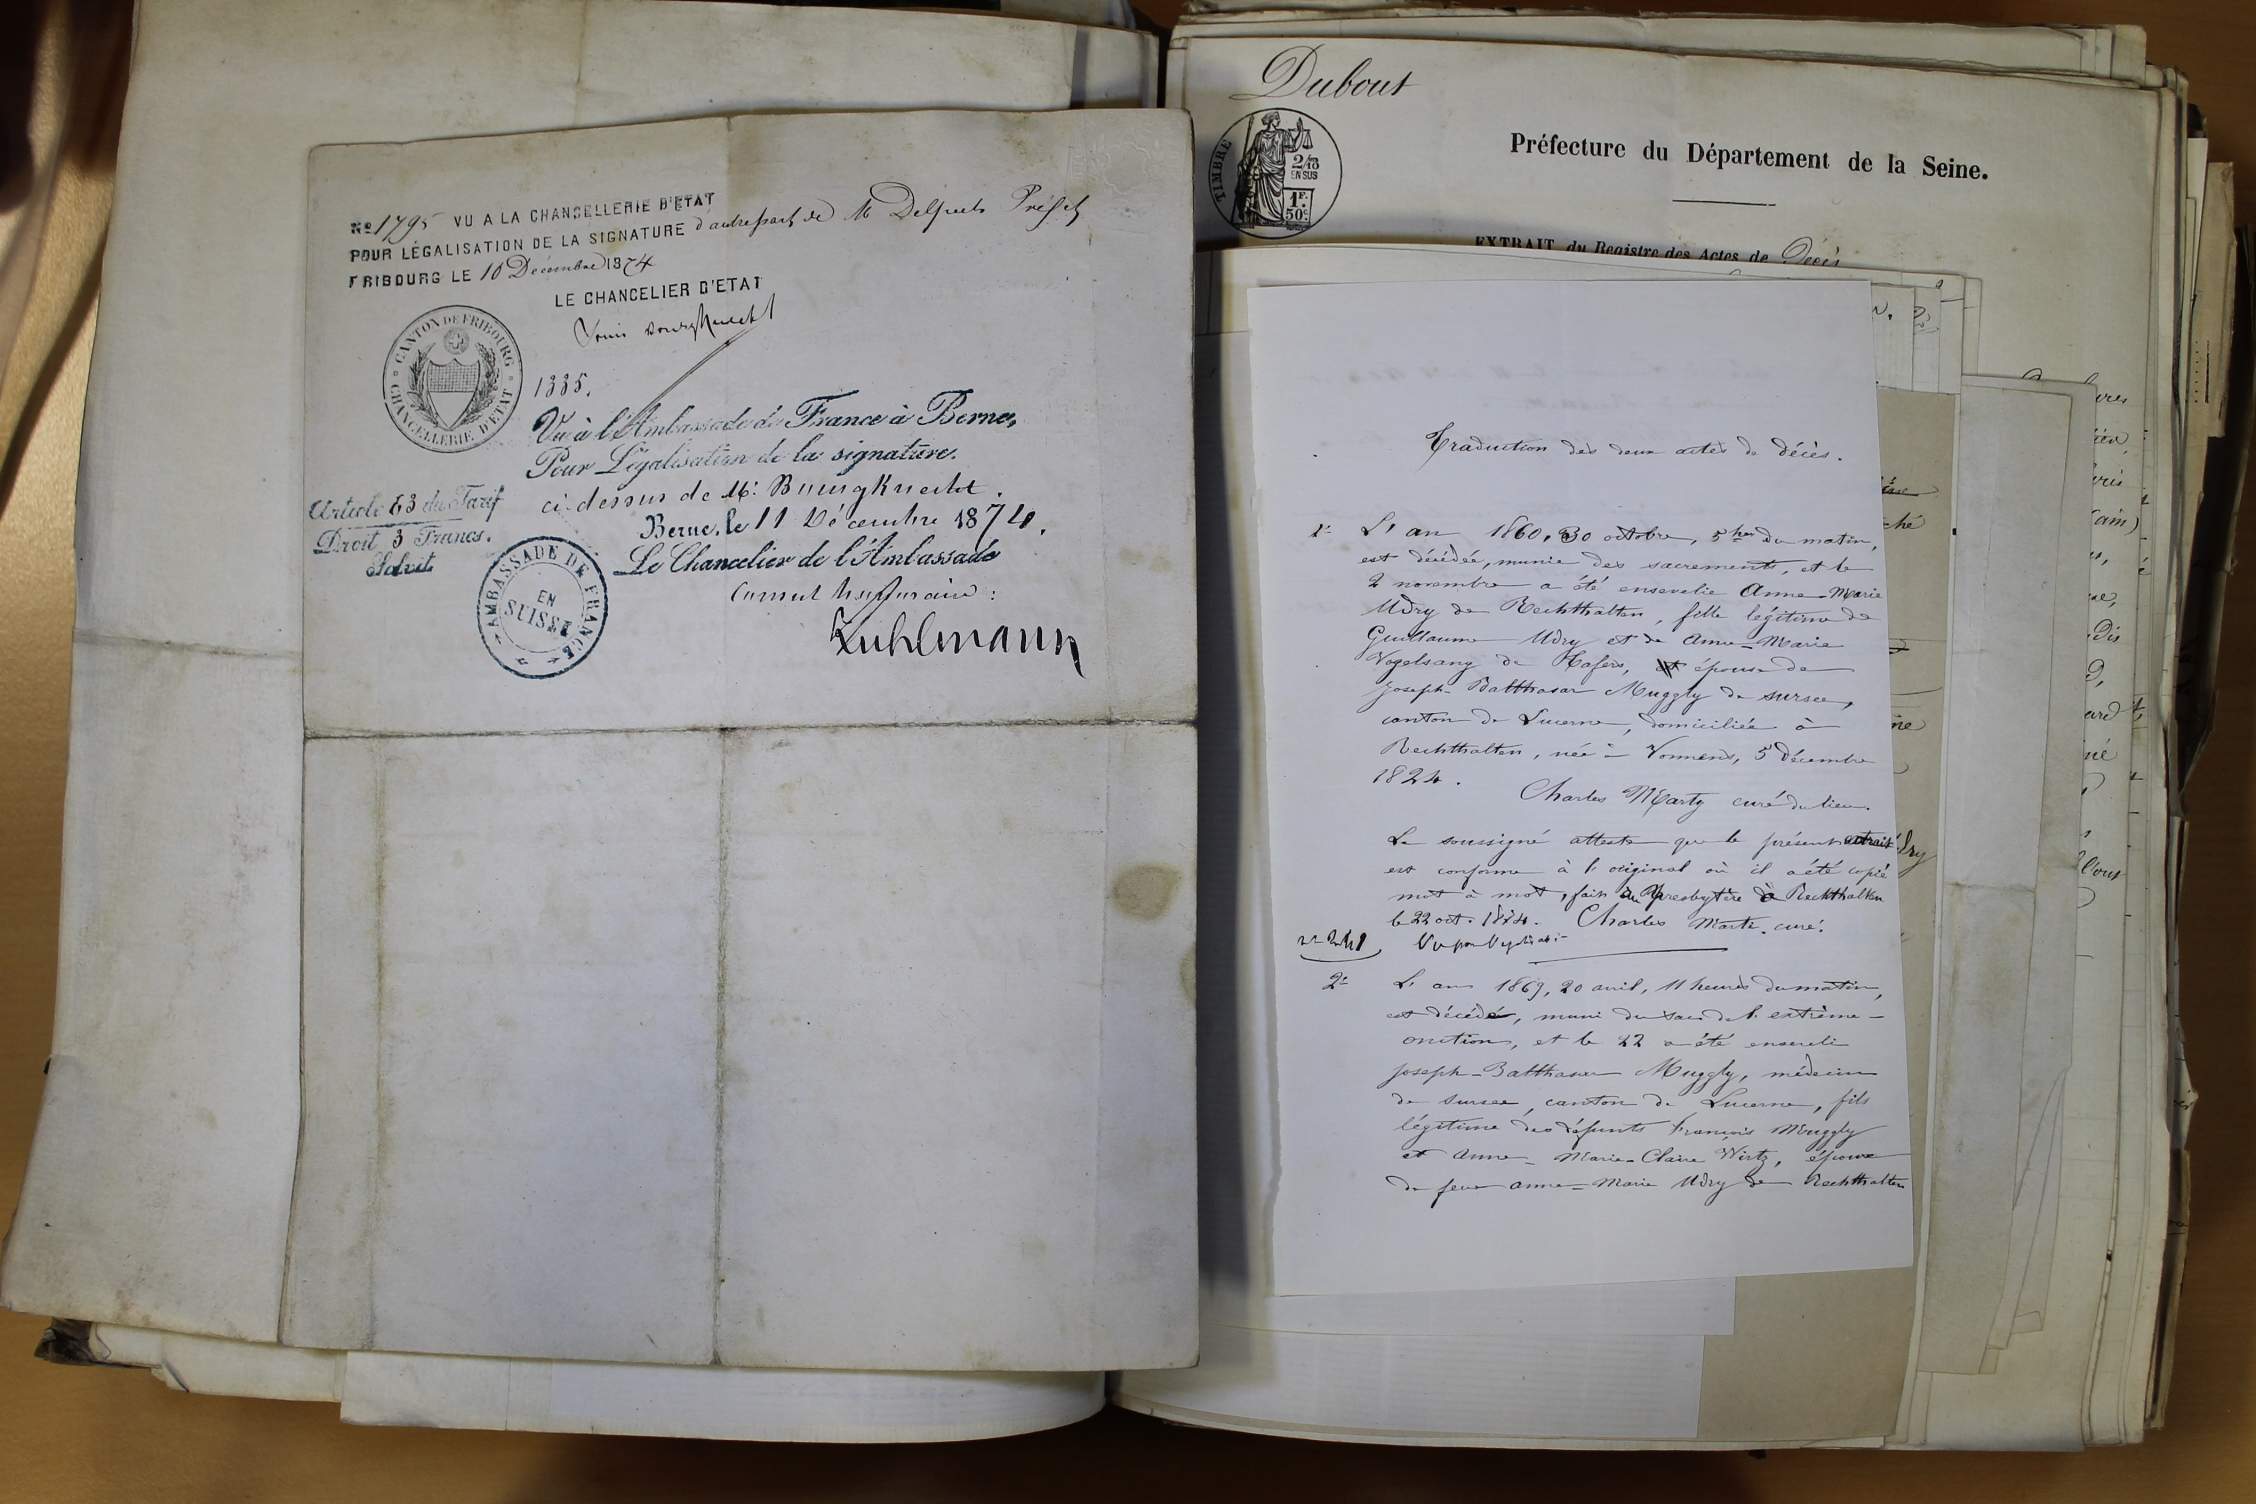 No 1795 VU A LA CHANCELLERIE D'ETAT
POUR LÉGALISATION DE LA SIGNATURE d'autre part de M Préfet
FRIBOURG LE 10 Décembre 1874
LE CHANCELIER D'ETAT
CANTON DE FRIBOURG
CHANCELLERIE D'ETAT
1335.
Vu à l'Ambassade de France à Berne,
Pour Légalisation de la signature.
ci-dessus de Mr. Bourgknecht.
Berne, le 11 Décembre 1874.
Le Chancelier de l'Ambassade
Consul honoraire:
Article 63 du Tarif
Droit 3 Francs.
Solvit
AMBASSADE DE FRANCE
EN
SUISSE
Dubout
TIMBRE
2/10
EN SUS
1F.
50c.
Préfecture du Département de la Seine.
EXTRAIT du Registre des Actes de Décès
Traduction des deux actes de décès.
1° L'an 1860, 30 octobre, 5 hres du matin,
est décédée, munie des sacrements, et le
2 novembre a été ensevelie Anne-Marie
Udry de Rechthalten, fille légitime de
Guillaume Udry et de Anne-Marie
Vogelsang de Tafers, épouse de
Joseph-Balthasar Muggly de Sursee,
canton de Lucerne, domiciliée à
Rechthalten, née à Vonmens, 5 décembre
1824.
Charles Marty curé du lieu.
Le soussigné atteste que le présent extrait
est conforme à l'original où il a été copié
mot à mot, fait au Presbytère de Rechthalten
le 22 oct. 1874. Charles Marty, curé.
Vu pour
2° L'an 1869, 20 avril, 11 heures du matin,
est décédé, muni du sac. de l'extrême-
onction, et le 22 a été enseveli
Joseph-Balthasar Muggly, médecin
de Sursee, canton de Lucerne, fils
légitime des défunts François Muggly
et Anne-Marie-Claire Wirtz, époux
de feue Anne-Marie Udry de Rechthalten